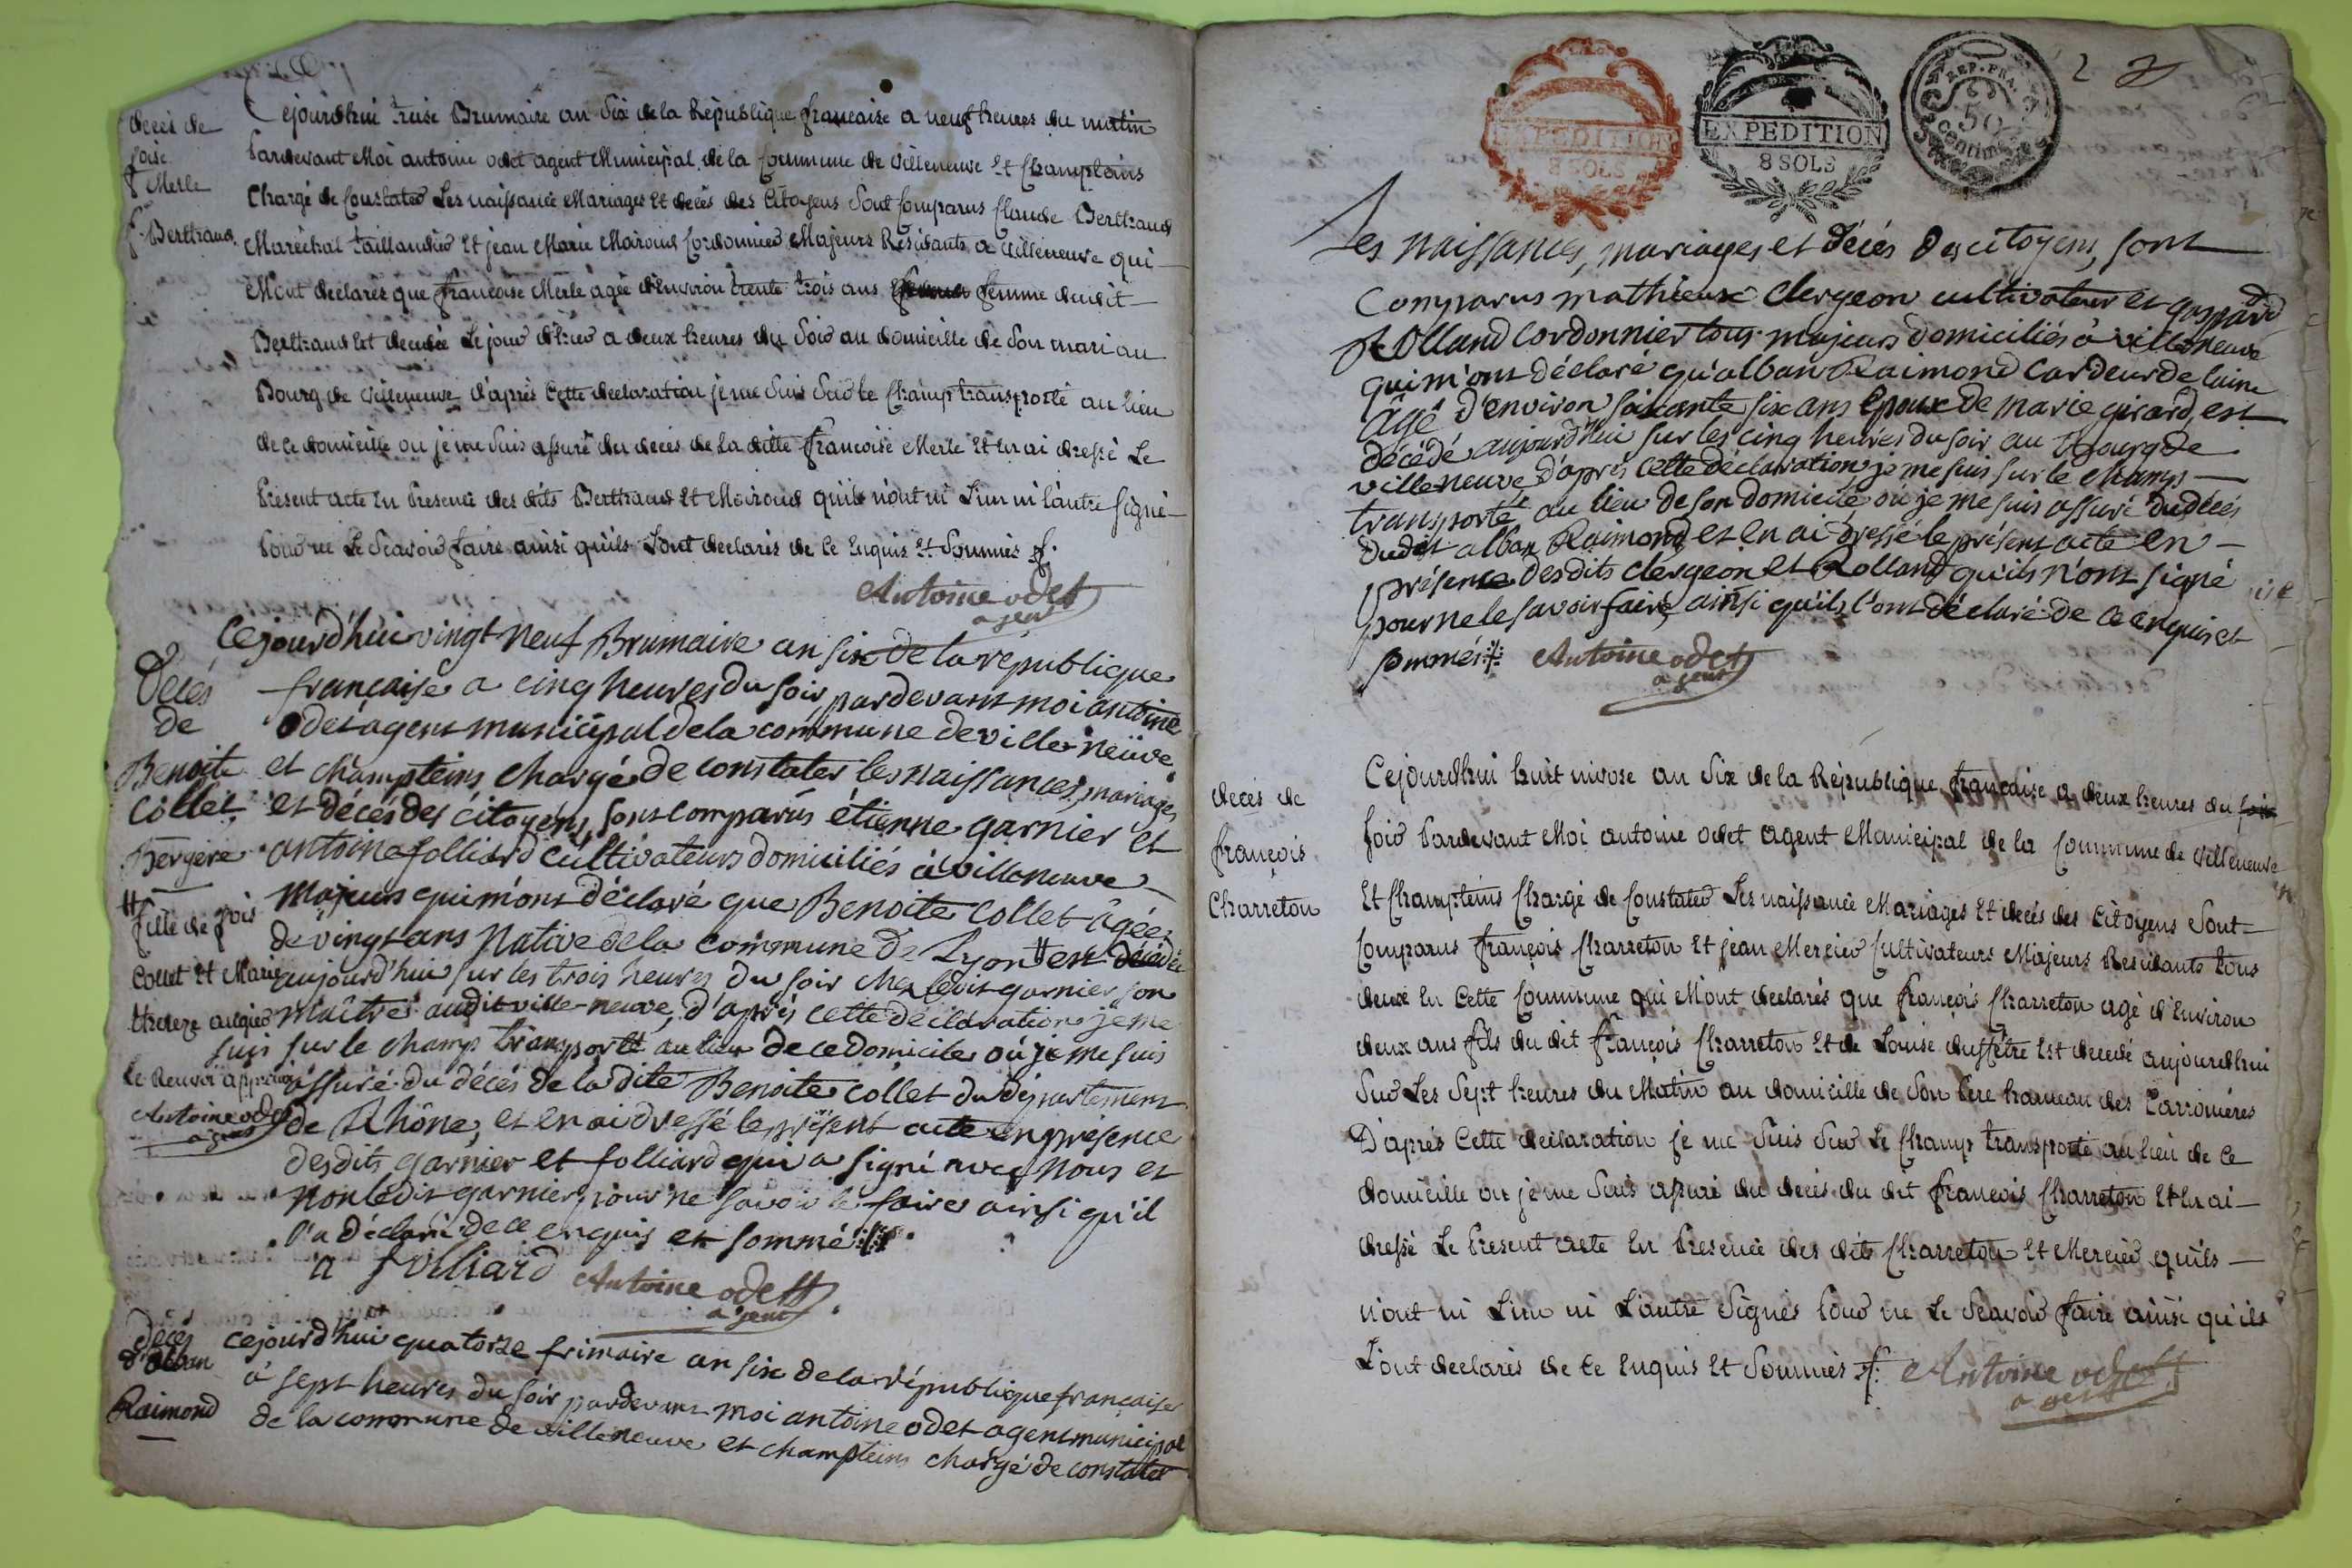 deces de
Cejourdhui treise Brumaire an Six de la Republique francaise a neuf heures du matin
Pardevant Moi antoine odet agent Municipal de la Commune de villeneuve Et Champteins
f Merle
Chargé de Constater Les naissance Mariages Et decés des Citoyens Sont Comparus Claude Berttraud
f. Berttraud
Maréchal taillandier Et jean Marie Moiroud Cordonnier Majeurs Residants a villeneuve qui
Mont declarés que francoise Merle agée d'Environ trente trois ans femme dudit
Berttraud Est decedée Le jour d'hier a deux heures du Soir au domicille de Son mari au
Bourg de villeneuve d'aprés Cette declaration je me Suis Sur le Champ transporté au lieu
de ce domicille ou je me Suis assuré du deces de la ditte francoise Merle Et En ai dressé Le
Present acte En Presence des dits Berttraud Et Moiroud quils n'ont ni L'un ni l'autre Signé
Pour ne Le Scavoir faire ainsi quils L'ont declarés de Ce Enquis Et Sommés f.
Antoine odet
agent
Cejourd'hui vingt neuf Brumaire an six de la république
Décés
de
Benoite
Collet
Bergere
française a cinq heures du soir, pardevant moi antoine
odet agent municipal de la commune de villeneüve
et champteins, chargé de constater les naissances, mariages
et décés des citoyens, sont comparus étienne garnier et
antoine folliard cultivateurs domiciliés à villeneuve
majeurs qui m'ont déclaré que Benoite Collet âgée
# fille de fois
Collet Et Marie
Le Renvoi approuvé
Antoine odet
agent
de vingt ans native de la commune de Lyon # est décédée
aujourd'hui sur les trois heures du soir chez ledit garnier son
maître audit ville-neuve, d'après cette déclaration je me
suis sur le champ transporté au lieu de ce domicile où je me suis
assuré du décés de la dite Benoite collet du département
de Rhône, et en ai dressé le présent acte en présence
desdits garnier et folliard qui a signé avec nous et
non ledit garnier, pour ne savoir le faire ainsi qu'il
l'a déclaré de ce enquis et sommé
a folliard Antoine odet
agent
Décés
d'alban
Raimond
Cejourd'hui quatorze frimaire an six de la république française
à sept heures du soir pardevant moi antoine odet agent municipal
de la commune de villeneuve et champteins chargé de constater
EXPEDITION
8 SOLS
EXPEDITION
8 SOLS
REP. FRA.
50
centimes
2
Les naissances, mariages et décés des citoyens, sont
Comparus mathieux clergeon cultivateur et gaspard
Rolland Cordonnier tous majeurs domiciliés à villeneuve
qui m'ont déclaré qu'alban Raimond Cardeur de laine
âgé d'environ soixante six ans époux de marie girard, est
décédé aujourd'hui sur les cinq heures du soir au bourg de
villeneuve d'après cette déclaration, je me suis sur le champ
transporté au lieu de son domicile où je me suis assuré du décés
dudit alban Raimond et en ai dressé le présent acte en
présence desdits clergeon et Rolland qu'ils n'ont signé
pour ne le savoir faire, ainsi qu'ils l'ont déclaré de ce enquis et
sommés Antoine odet
agent
deces de
françois
Charreton
Cejourdhui huit nivose an Six de la Republique française a deux heures du
soir Pardevant Moi antoine odet agent Municipal de la Commune de villeneuve
Et Champteins Chargé de Constater Les naissance Mariages Et decés des Citoyens Sont
Comparus françois Charreton Et jean Mercier Cultivateurs Majeurs Residants tous
deux En Cette Commune qui Mont declarés que françois Charreton agé d'Environ
deux ans fils du dit françois Charreton Et de Louise duffetre Est decedé aujourdhui
Sur Les Sept heures du Matin au domicille de Son Pere hameau des Parronieres
D'aprés Cette declaration je me Suis Sur Le Champ transporté au lieu de Ce
domicille ou je me Suis assuré du decés du dit françois Charreton Et En ai
dressé Le Present acte En Presence des dits Charreton Et Mercier quils
n'ont ni L'un ni L'autre Signés Pour ne Le Scavoir faire ainsi qu'ils
L'ont declarés de Ce Enquis Et Sommés f. Antoine odet
agent